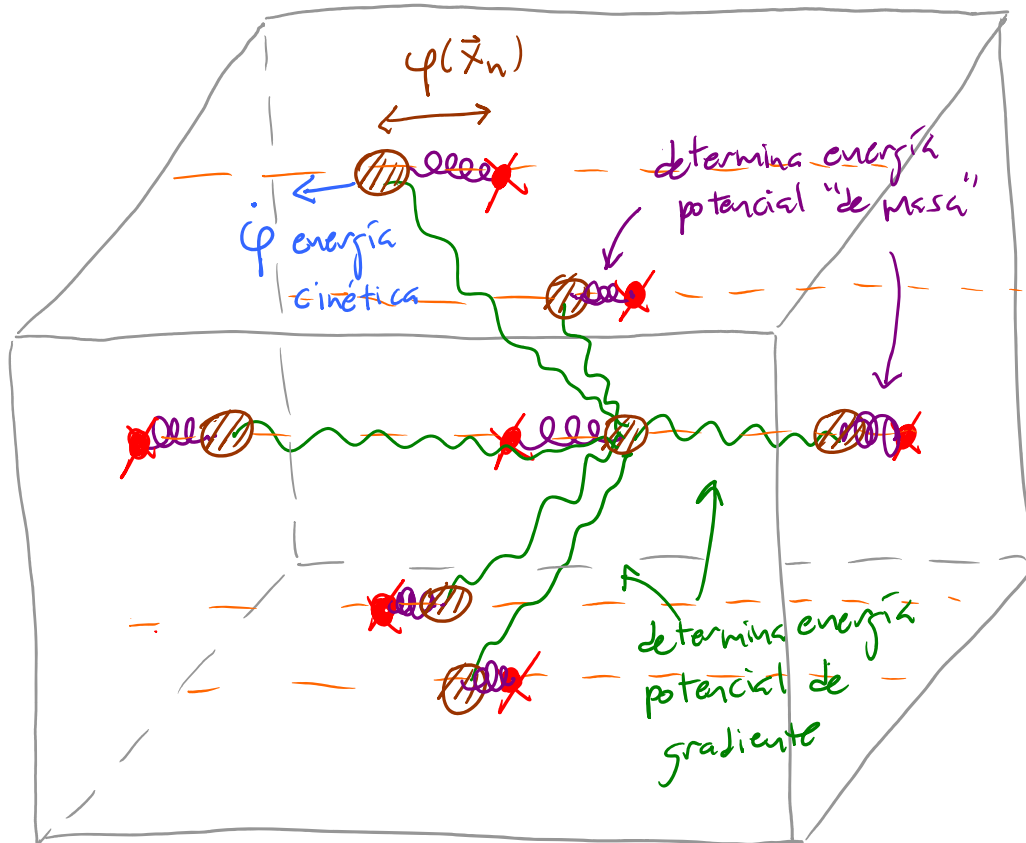 φ(x⃗ₙ)
determina energía
potencial "de masa"
φ̇ energía
cinética
determina energía
potencial de
gradiente